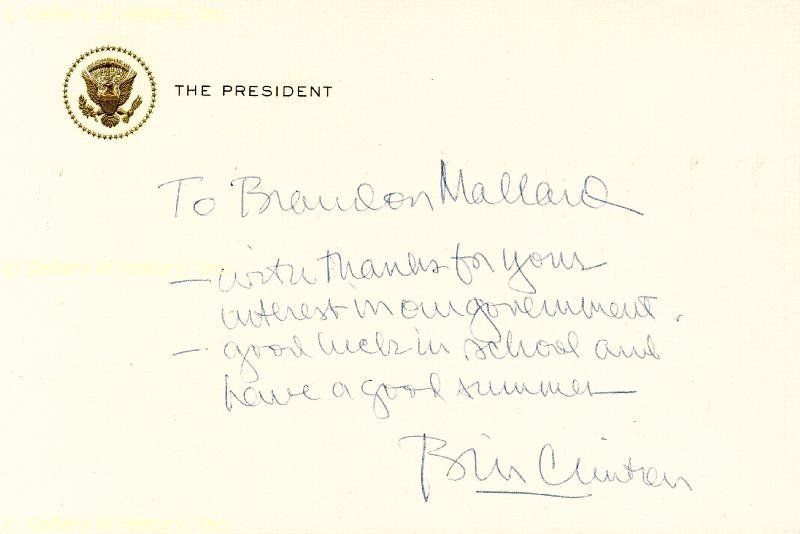 © Gallery of History, Inc.
THE PRESIDENT
To Brandon Mallard
— with thanks for your
© Gallery of History, Inc.
interest in our government.
— good luck in school and
have a good summer
Bill Clinton
© Gallery of History, Inc.